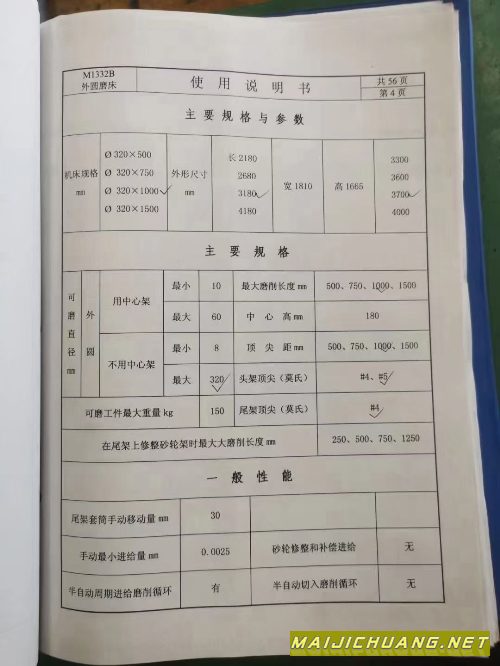 M1332B
外圆磨床
使用说明书
共 56 页
第 4 页
主要规格与参数
机床规格
mm
Ø 320×500
Ø 320×750
Ø 320×1000✓
Ø 320×1500
外形尺寸
mm
长 2180
2680
3180✓
4180
宽 1810
高 1665
3300
3600
3700✓
4000
主要规格
可磨直径 mm
外圆
用中心架
最小
10
最大磨削长度 mm
500、750、1000、1500
最大
60
中心高 mm
180
不用中心架
最小
8
顶尖距 mm
500、750、1000、1500
最大
320✓
头架顶尖（莫氏）
#4、#5✓
可磨工件最大重量 kg
150
尾架顶尖（莫氏）
#4✓
在尾架上修整砂轮架时最大大磨削长度 mm
250、500、750、1250
一般性能
尾架套筒手动移动量 mm
30
手动最小进给量 mm
0.0025
砂轮修整和补偿进给
无
半自动周期进给磨削循环
有
半自动切入磨削循环
无
MAIJICHUANG.NET